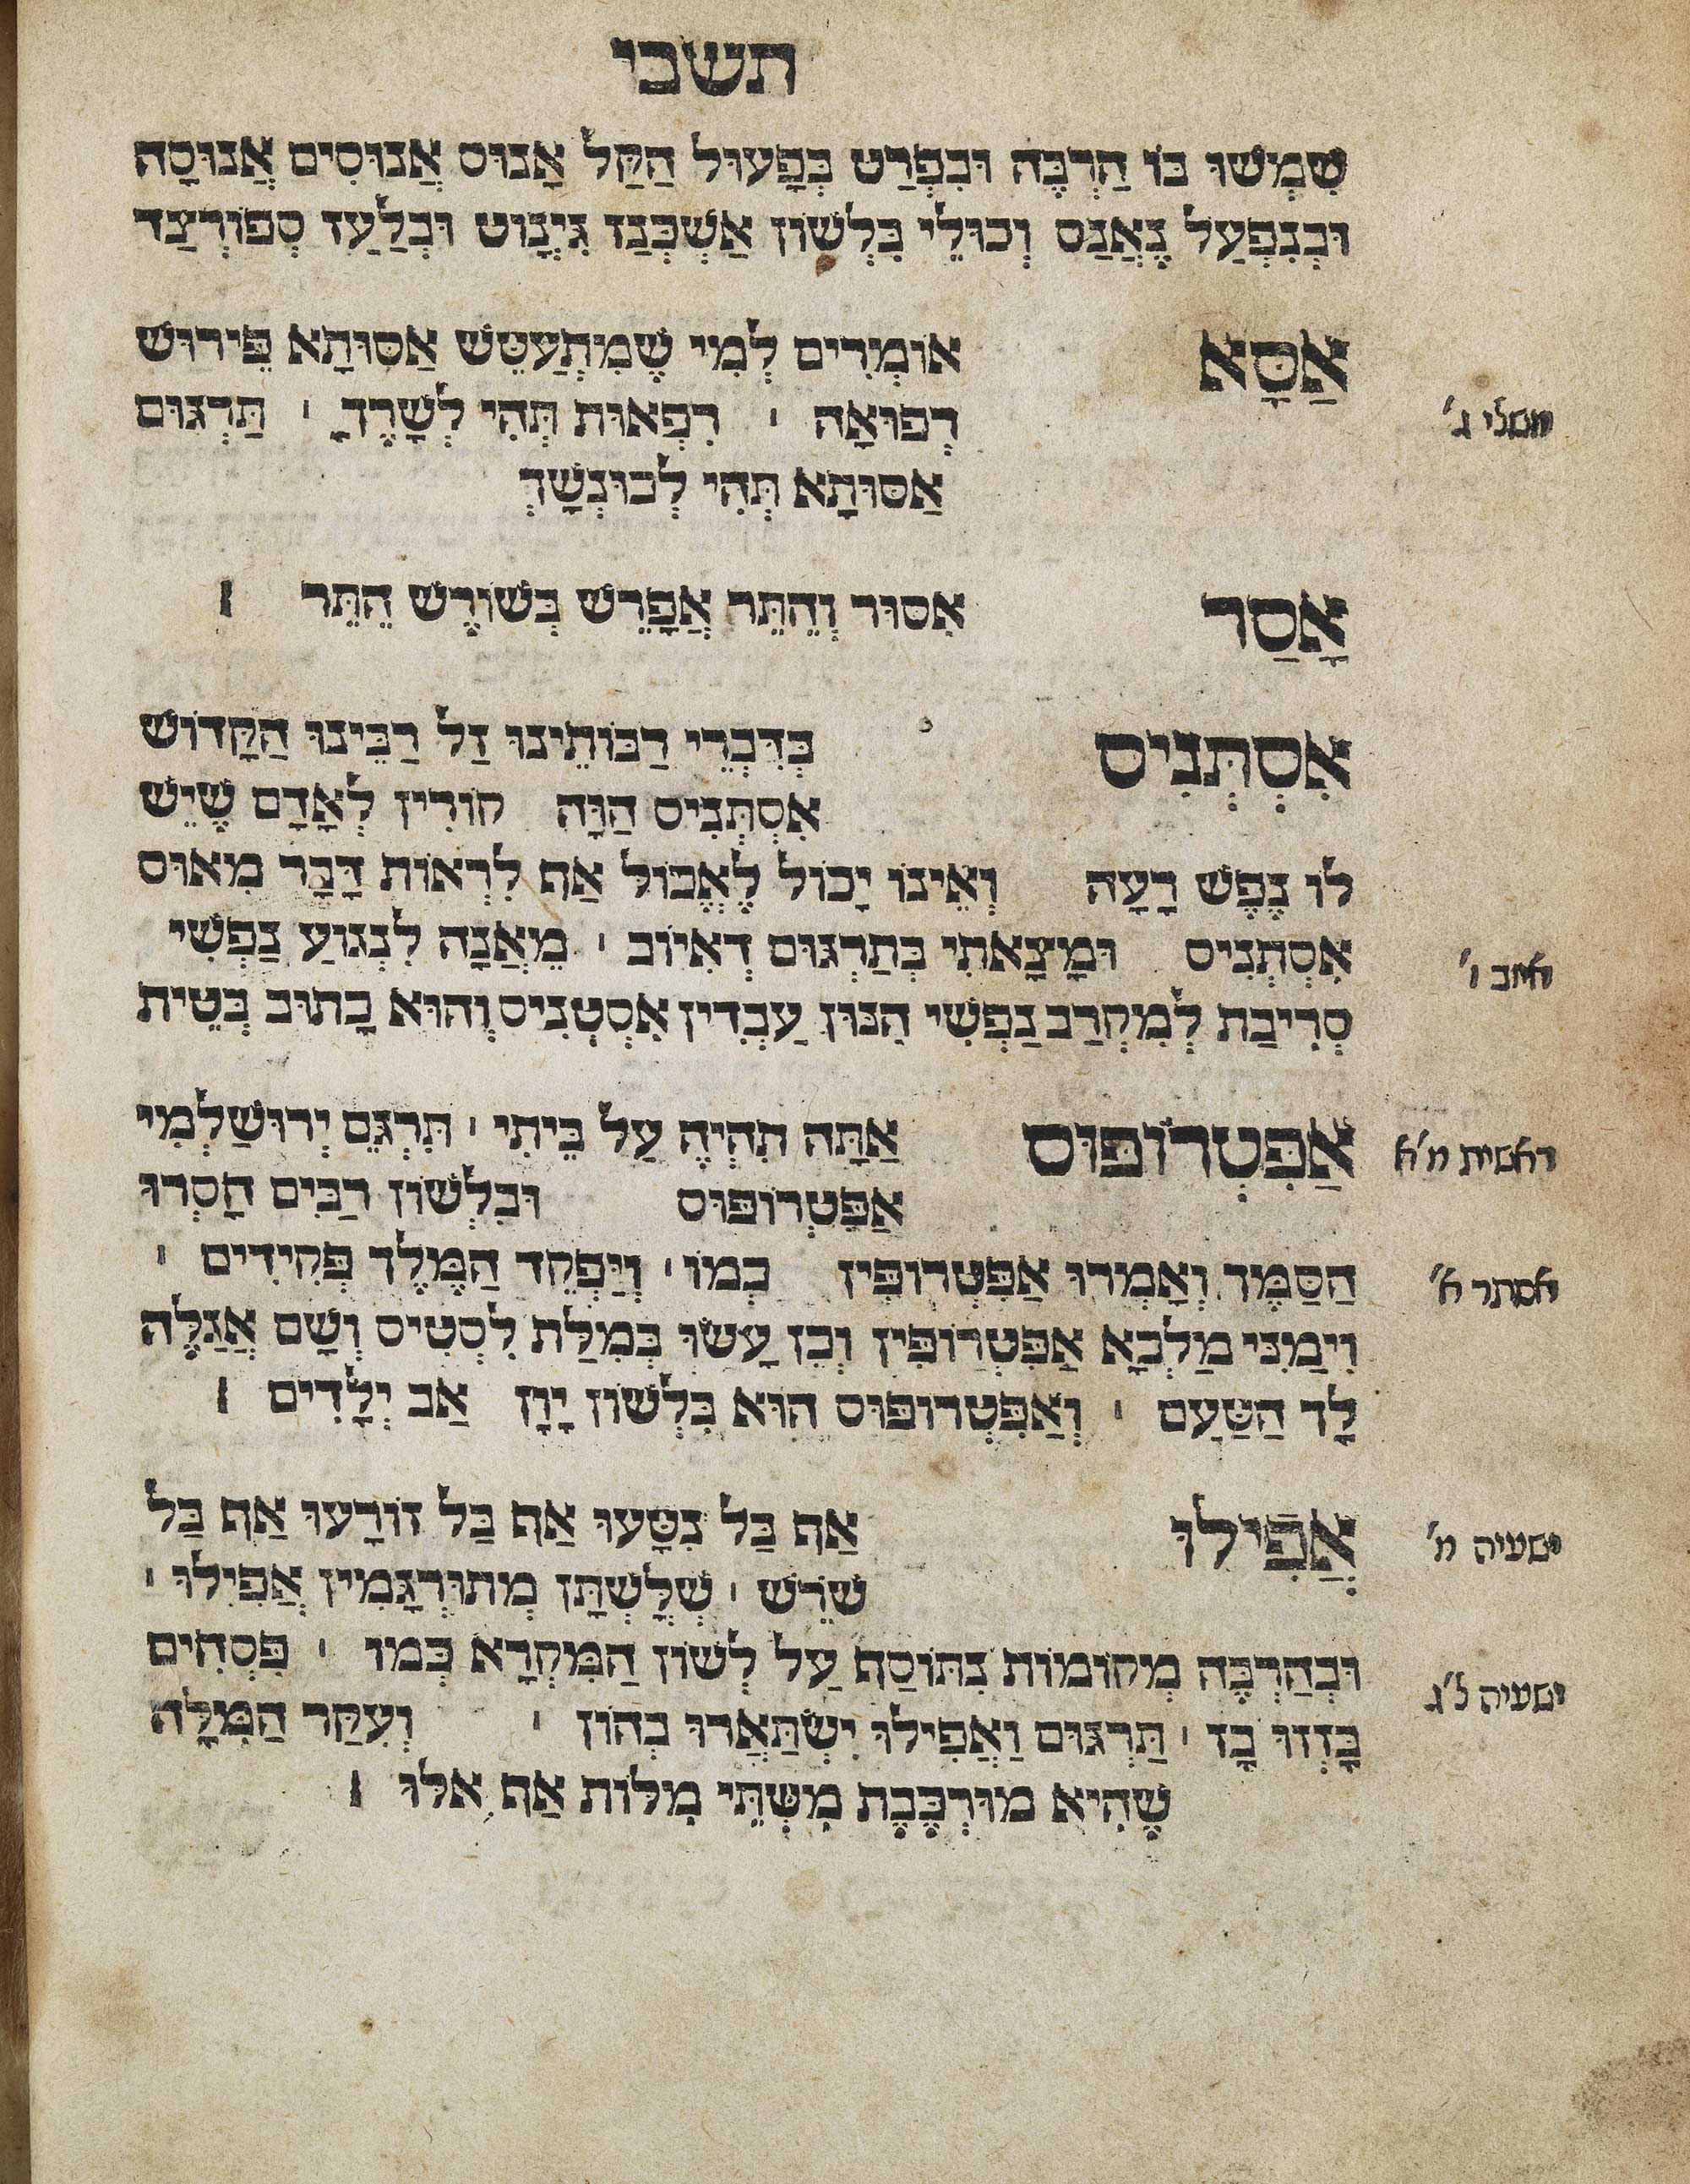 תשבי
שִׁמְשׁוּ בּוֹ הַרְבֶּה וּבִפְרַט בְּפָעוּל הַקַּל אָנוּס אֲנוּסִים אֲנוּסָה
וּבְנִפְעַל נֶאֱנַס וְכוּלֵי בִּלְשׁוֹן אַשְׁכְּנַז גִּיְנָוט וּבְלַעַז סְפוֹרְצַד
אַסָּא
אוֹמְרִים לְמִי שֶׁמִתְעַטֵּשׁ אַסּוּתָא פֵּירוּשׁ
משלי ג'
רְפוּאָה ׳ רִפְאוּת תְּהִי לְשָׁרֶךָ ׳ תַּרְגּוּם
אַסּוּתָא תְּהִי לְכוּנְשָׁךְ
אָסַר
אִסוּר וְהֵתֵּר אֲפָרֵשׁ בְּשׁוֹרֶשׁ הֵתֵּר ׀
אִסְתְּנִיס
בְּדִבְרֵי רַבּוֹתֵינוּ זַל רַבֵּינוּ הַקָּדוֹשׁ
אִסְתְּנִיס הַוָּה קוֹרִין לְאָדָם שֶׁיֵשׁ
לוֹ נֶפֶשׁ רָעָה וְאֵינוֹ יָכוֹל לֶאֱכוֹל אַף לִרְאוֹת דָּבָר מִאוּס
איוב ו'
אִסְתְנִיס וּמָצָאתִי בְּתַרְגּוּם דְאִיוֹב ׳ מֵאֲנָה לִנְגוֹעַ נַפְשִׁי
סְרִיבַת לְמִקְרַב נַפְשִׁי הִנּוּן עַבְדִין אִסְטְנִיס וְהוּא כָתוּב בְּטֵית
אַפִּטְרוֹפּוּס
ראשית מ'א
אַתָּה תִהְיֶה עַל בֵּיתִי ׳ תִּרְגֵּם יְרוּשַׁלְמִי
אַפִּטְרוֹפּוּס וּבִלְשׁוֹן רַבִּים חָסְרוּ
אסתר א'
הַסַּמֶּךְ וְאָמְרוּ אַפִּטְרוֹפִּין כְמוֹ ׳ וְיַפְקֵד הַמֶּלֶךְ פְּקִידִים ׳
וִימַנִּי מַלְכָּא אַפִּטְרוֹפִּין וְכֵן עָשׂוּ בְּמִלַּת לִסְטִיס וְשָׁם אֲגַלֶּה
לָךְ הַטַּעַם ׳ וְאַפִּטְרוֹפּוּס הוּא בִּלְשׁוֹן יָוָן אַב יְלָדִים ׀
אֲפִילוּ
ישעיה מ'
אַף בַּל נִטָּעוּ אַף בַּל זוֹרָעוּ אַף בַּל
שׁוֹרֵשׁ ׳ שְׁלָשְׁתָּן מְתוּרְגָּמִין אֲפִילוּ ׳
וּבְהַרְבֶּה מְקוֹמוֹת נִתּוֹסַף עַל לְשׁוֹן הַמִּקְרָא כְּמוֹ ׳ פִּסְחִים
ישעיה ל'ג
בָּזְזוּ בָז ׳ תַּרְגּוּם וַאֲפִילוּ יִשְׁתַּאֲרוּ בְהוֹן ׳ וְעִקַּר הַמִּלָּה
שֶׁהִיא מוּרְכֶּבֶת מִשְּׁתֵּי מִלּוֹת אַף אִלּוּ ׀